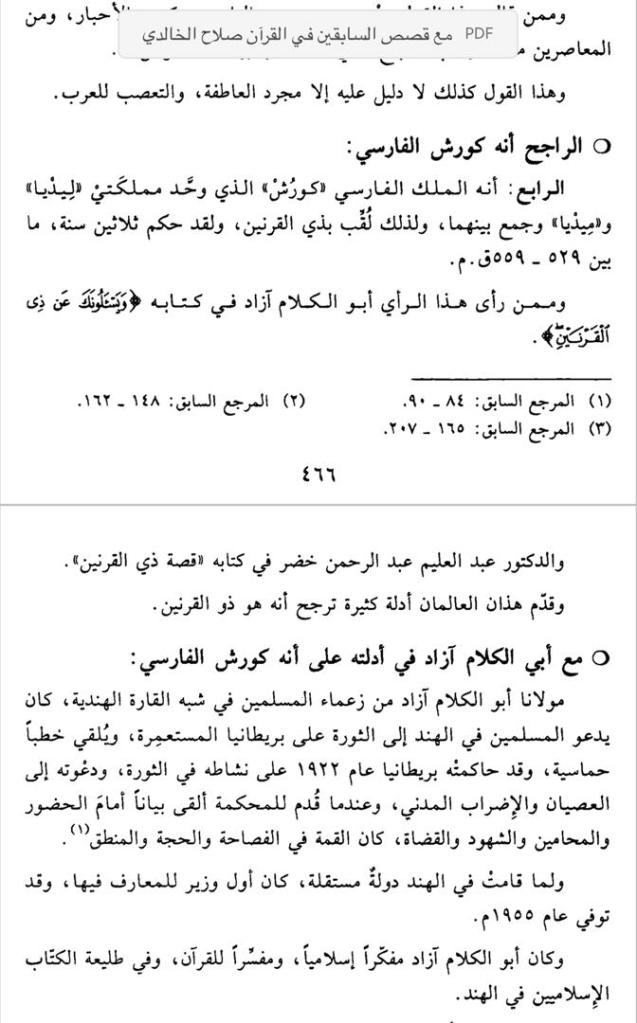 وممن
الأحبار، ومن
PDF مع قصص السابقين في القرآن صلاح الخالدي
المعاصرين
وهذا القول كذلك لا دليل عليه إلا مجرد العاطفة، والتعصب للعرب.
○ الراجح أنه كورش الفارسي:
الرابع: أنه الملك الفارسي «كورُشْ» الذي وحَّد مملكَتيْ «لِيدْيا»
و«مِيدْيا» وجمع بينهما، ولذلك لُقِّب بذي القرنين، ولقد حكم ثلاثين سنة، ما
بين ٥٢٩ ـ ٥٥٩ق.م.
وممن رأى هذا الرأي أبو الكلام آزاد في كتابه ﴿وَيَسْـَٔلُونَكَ عَن ذِى
ٱلْقَرْنَيْنِ﴾.
(١) المرجع السابق: ٨٤ ـ ٩٠.
(٢) المرجع السابق: ١٤٨ ـ ١٦٢.
(٣) المرجع السابق: ١٦٥ ـ ٢٠٧.
٤٦٦
والدكتور عبد العليم عبد الرحمن خضر في كتابه «قصة ذي القرنين».
وقدّم هذان العالمان أدلة كثيرة ترجح أنه هو ذو القرنين.
○ مع أبي الكلام آزاد في أدلته على أنه كورش الفارسي:
مولانا أبو الكلام آزاد من زعماء المسلمين في شبه القارة الهندية، كان
يدعو المسلمين في الهند إلى الثورة على بريطانيا المستعمِرة، ويُلقي خطباً
حماسية، وقد حاكمتْه بريطانيا عام ١٩٢٢ على نشاطه في الثورة، ودعْوته إلى
العصيان والإِضراب المدني، وعندما قُدم للمحكمة ألقى بياناً أمامَ الحضور
والمحامين والشهود والقضاة، كان القمة في الفصاحة والحجة والمنطق(١).
ولما قامتْ في الهند دولةٌ مستقلة، كان أول وزير للمعارف فيها، وقد
توفي عام ١٩٥٥م.
وكان أبو الكلام آزاد مفكّراً إسلامياً، ومفسِّراً للقرآن، وفي طليعة الكتّاب
الإِسلاميين في الهند.